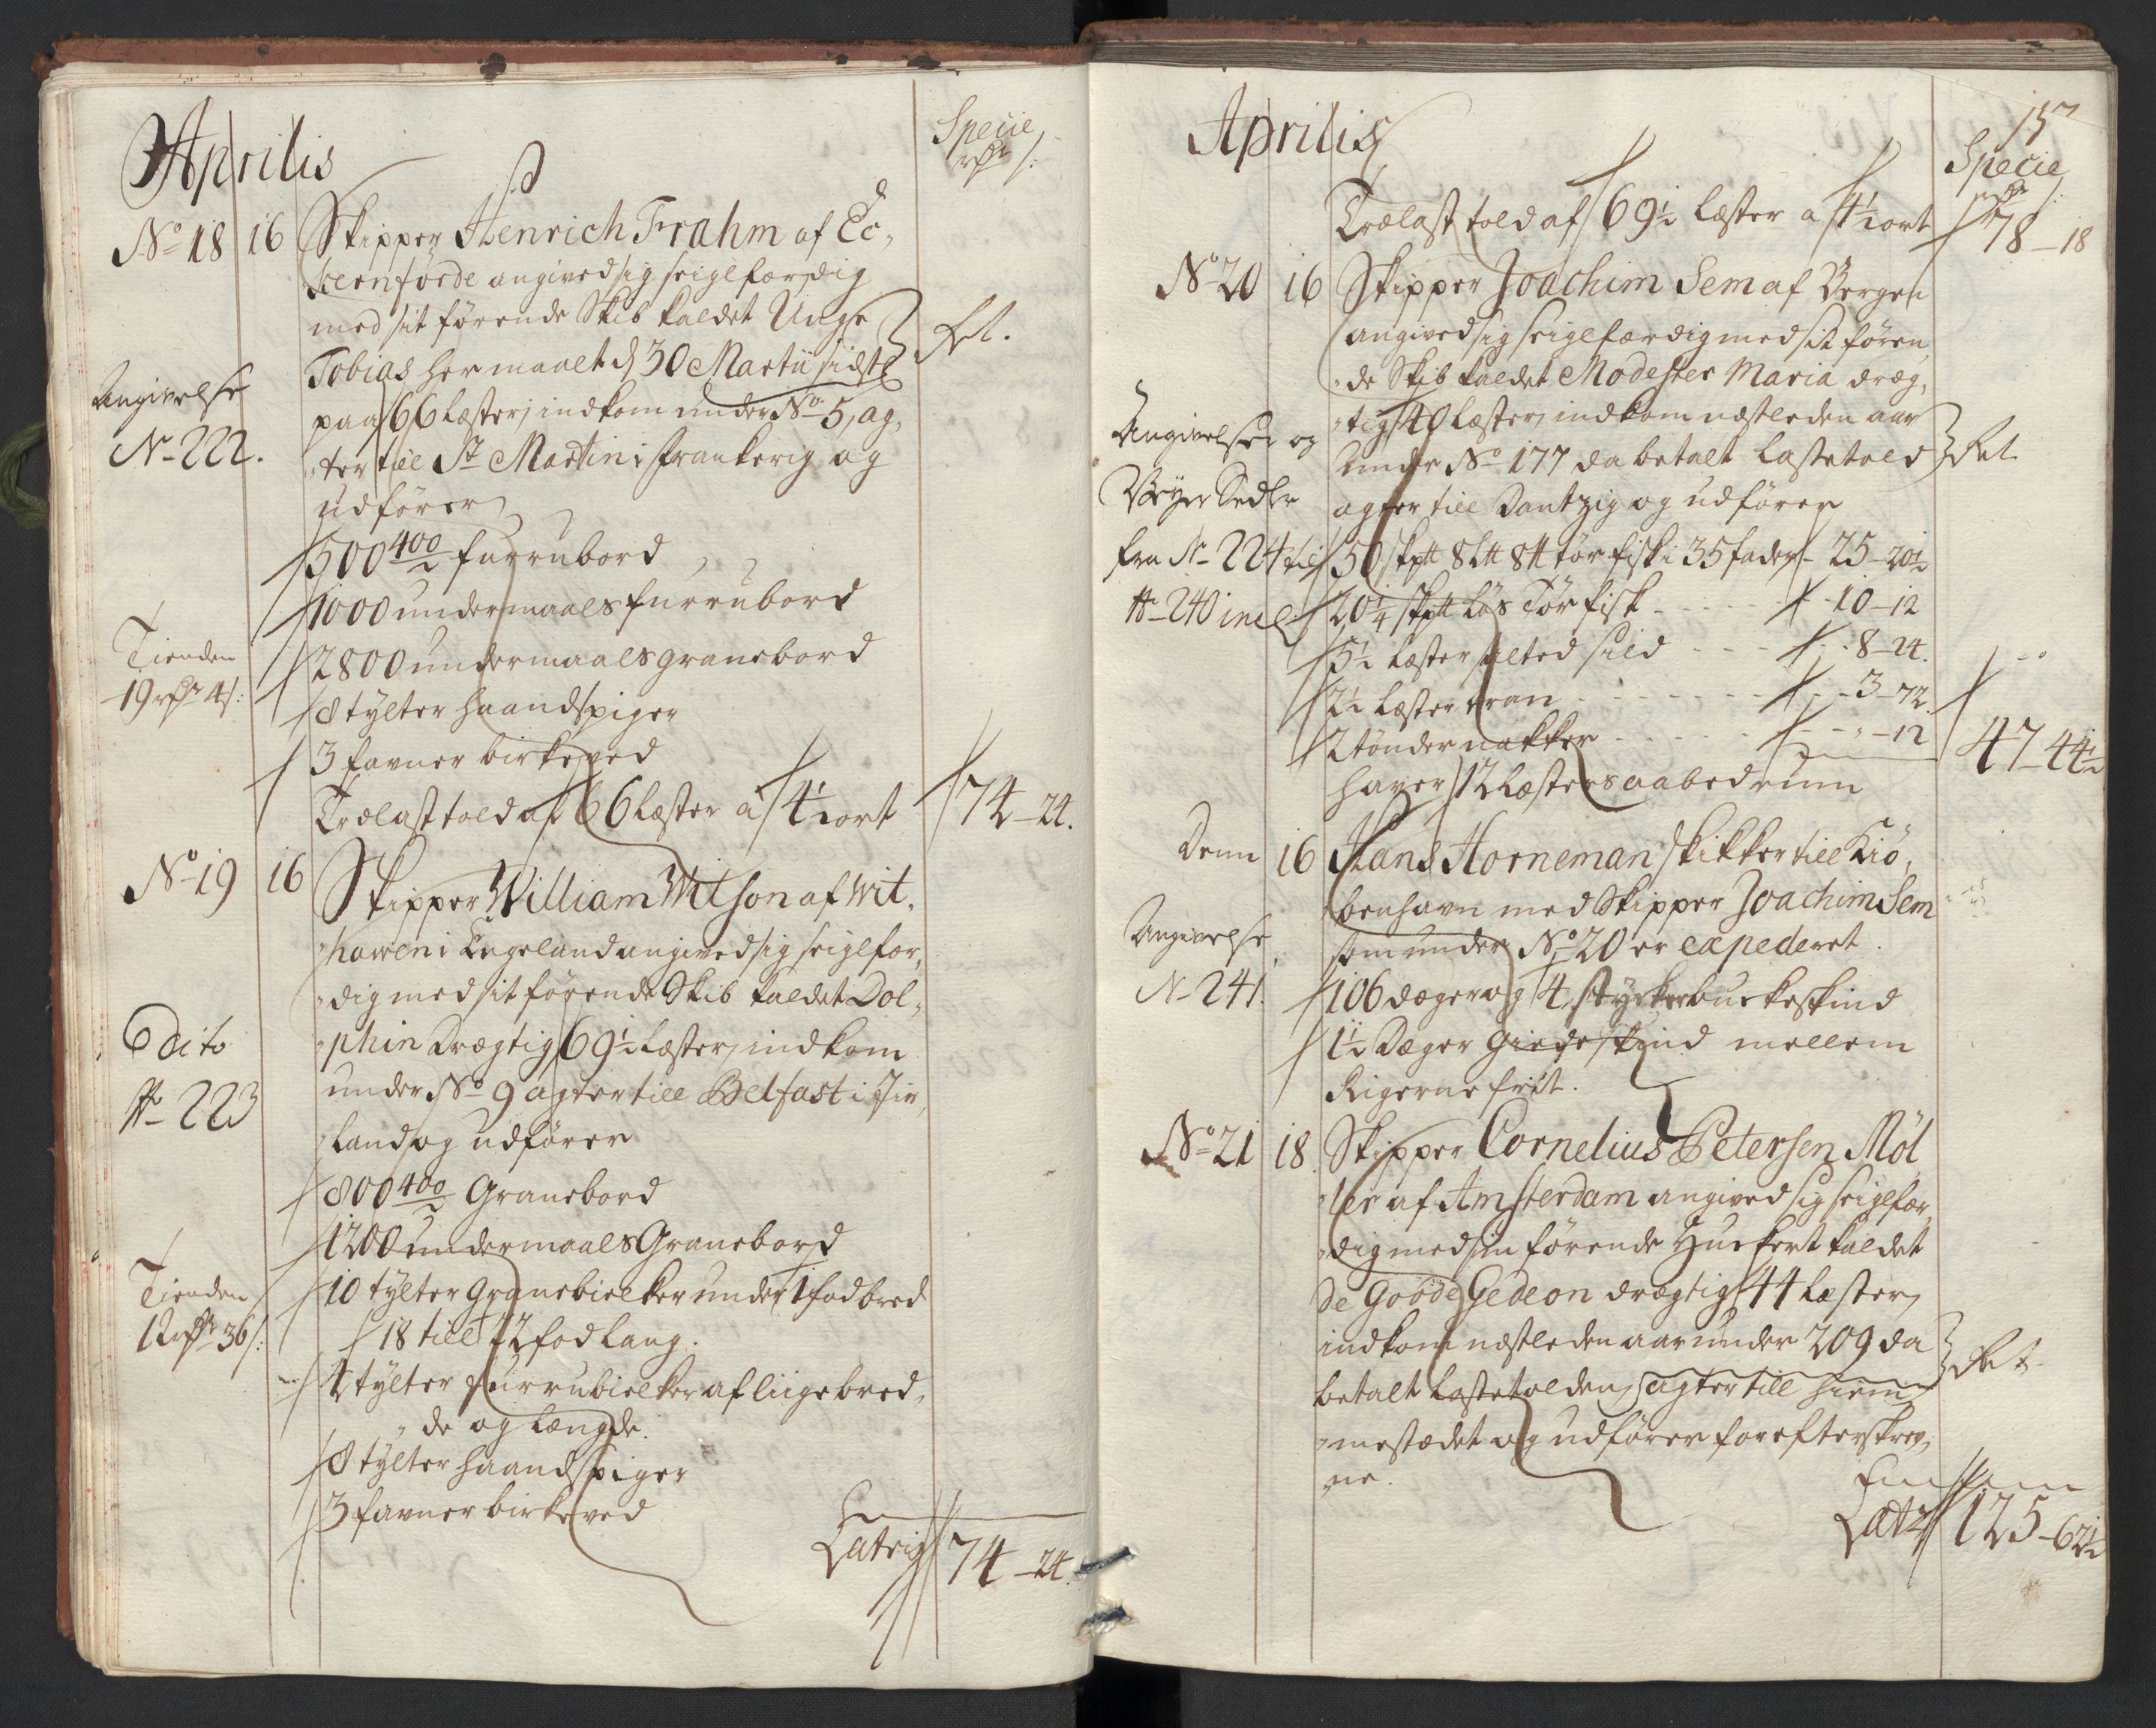 Aprilis
Specie
rdr s:
No 18 16 Skipper Henrich Frahm af Ec,
kernförde angived sig seigelfærdig
med sit førende Skib kaldet Unge
Tobias her maalt d 30 Martii sidstl
paa 66 Læster, indkom under No 5, ag,
"ter till St Martin i Frankerig og
udfører
Angivelse
No 222.
500 400/2 furrubord
1000 undermaals furrubord
2800 undermaals granebord
8 tylter haandspiger
3 favner birkeved
Tienden
19 rdr 4 s:
Trælast told af 66 Læster a 4½ ort 74-24.
No 19 16 Skipper William Witson af Wit,
"hawen i Engeland angived sig seigelfær,
"dig med sit førende Skib kaldet Dol,
"phin Drægtig 69½ Læster, indkom
under No 9 agter till Belfast i Jir,
"land og udfører
Dito
No 223
800 400/2 Granebord
1200 undermaals Granebord
10 tylter Granebielker under 1 fod bred
18 till 22 fod lang.
4 tylter furrubielker af liige bred,
"de og længde.
8 tylter haandspiger
3 favner birkeved
Tienden
12 rdr 36 s:
Latrig 74-24.
Aprilis
157
Specie
rdr s:
Trælast told af 69½ læster a 4½ ort 78-18
No 20 16 Skipper Joachim Sem af Bergen
angived sig seigelfærdig med sit føren,
"de Skib kaldet Modester Maria dræg,
"tig 40 Læster, indkom næstleden aar
under No 177 da betalt Lastetold
agter till Dantzig og udfører
Angivelser og
Veyer Sedler
fra No 224 til
No 240 incl
50 skptt 8 Ltt 8 tt tør fisk i 35 fader - 25-20½
20¼ skptt løs Tørfisk - - - - - 10-12
5½ Læster salted sild - - - 8-24.
2½ Læster tran - - - - - - - 3-72.
2 tønder nakker - - - - - - - -12
47-44½
haver 12 Læsters aabed rum
Denn 16 Hans Horneman skikker till Kiö,
benhavn med Skipper Joachim Sem
som under No 20 er expederet.
Angivelse
No 241.
106 dæger og 4 stycker buckeskind
1½ Dæger Giedeskind mellem
Rigerne frit.
No 21 18. Skipper Cornelius Petersen Møl
"ler af Amsterdam angived sig seigelfær,
"dig med sin førende Huckert kaldet
De Goode Gedeon drægtig 44 Læster,
indkom næstleden aar under 209 da
betalt Lastetolden, agter till hiem,
"mestædet og udfører forefterskrev,
ne.
Lat 125-62½